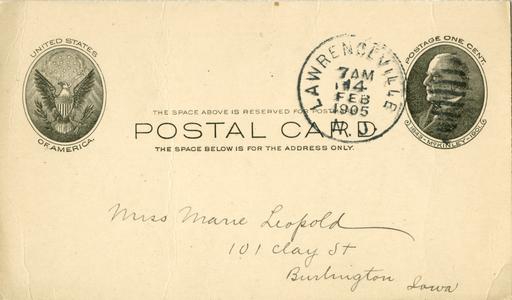 UNITED STATES
OF AMERICA.
POSTAGE ONE CENT.
1843-McKINLEY-1901.
LAWRENCEVILLE
7 AM
14
FEB
1905
N.J.
THE SPACE ABOVE IS RESERVED FOR POST
POSTAL CARD
THE SPACE BELOW IS FOR THE ADDRESS ONLY.
Miss Marie Leopold
101 Clay St
Burlington Iowa